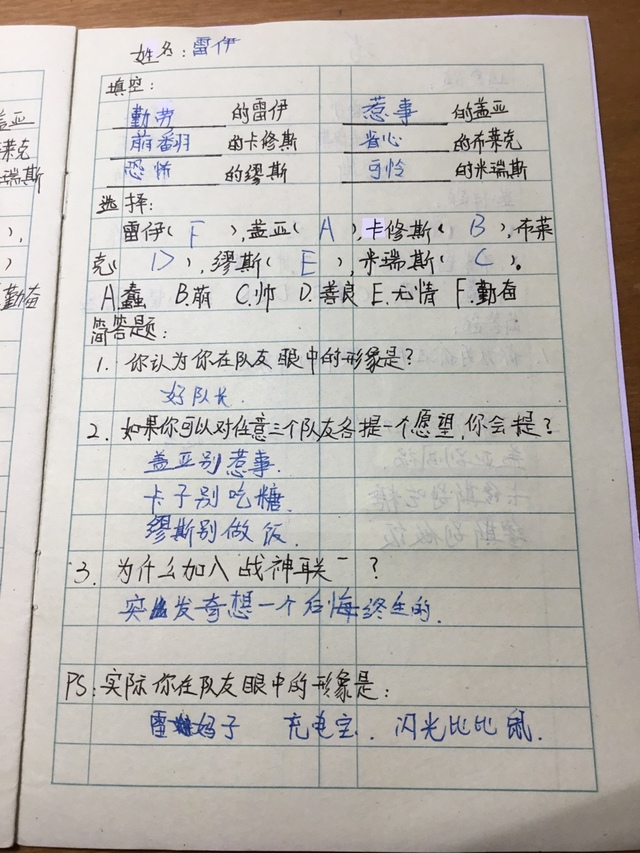 姓名:雷伊
填空:
勤劳的雷伊 惹事的盖亚
萌番归的卡修斯 省心的布莱克
恐怖的缪斯 可怜的米瑞斯
选择:
雷伊( F ),盖亚( A ),卡修斯( B ),布莱
克( D ),缪斯( E ),米瑞斯( C )。
A.蠢 B.萌 C.帅 D.善良 E.无情 F.勤奋
简答题:
1. 你认为你在队友眼中的形象是?
好队长.
2. 如果你可以对任意三个队友各提一个愿望,你会提?
盖亚别惹事.
卡子别吃糖.
缪斯别做饭.
3. 为什么加入战神联一?
突发奇想一个后悔终生的.
PS:实际你在队友眼中的形象是:
雷妈子 充电宝. 闪光比比鼠.
盖亚
莱克
米瑞斯
),
)
勤奋